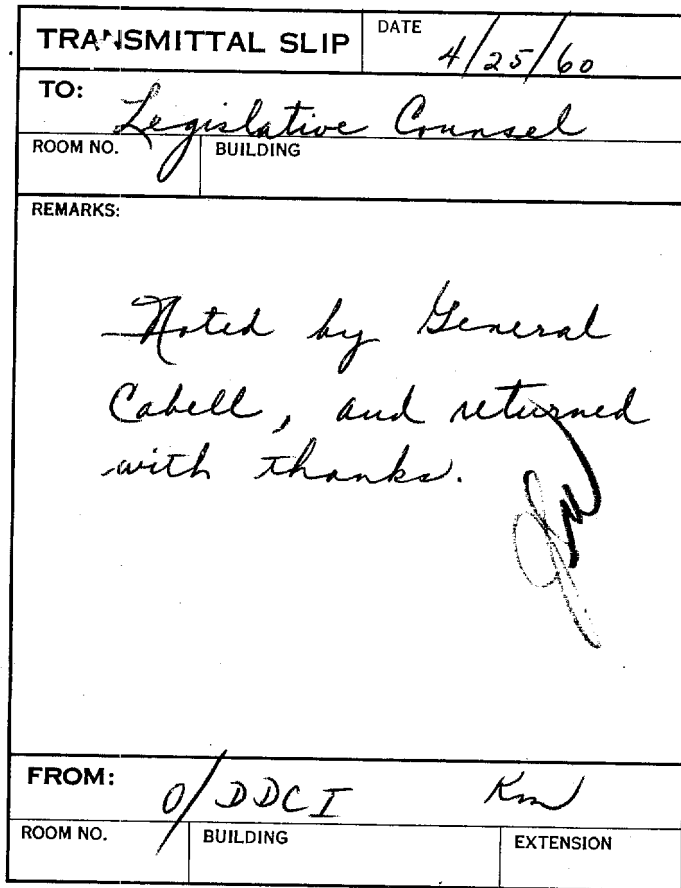 TRANSMITTAL SLIP
DATE
4/25/60
TO:
Legislative Counsel
ROOM NO.
BUILDING
REMARKS:
Noted by General
Cabell, and returned
with thanks.
FROM:
O/DDCI
ROOM NO.
BUILDING
EXTENSION